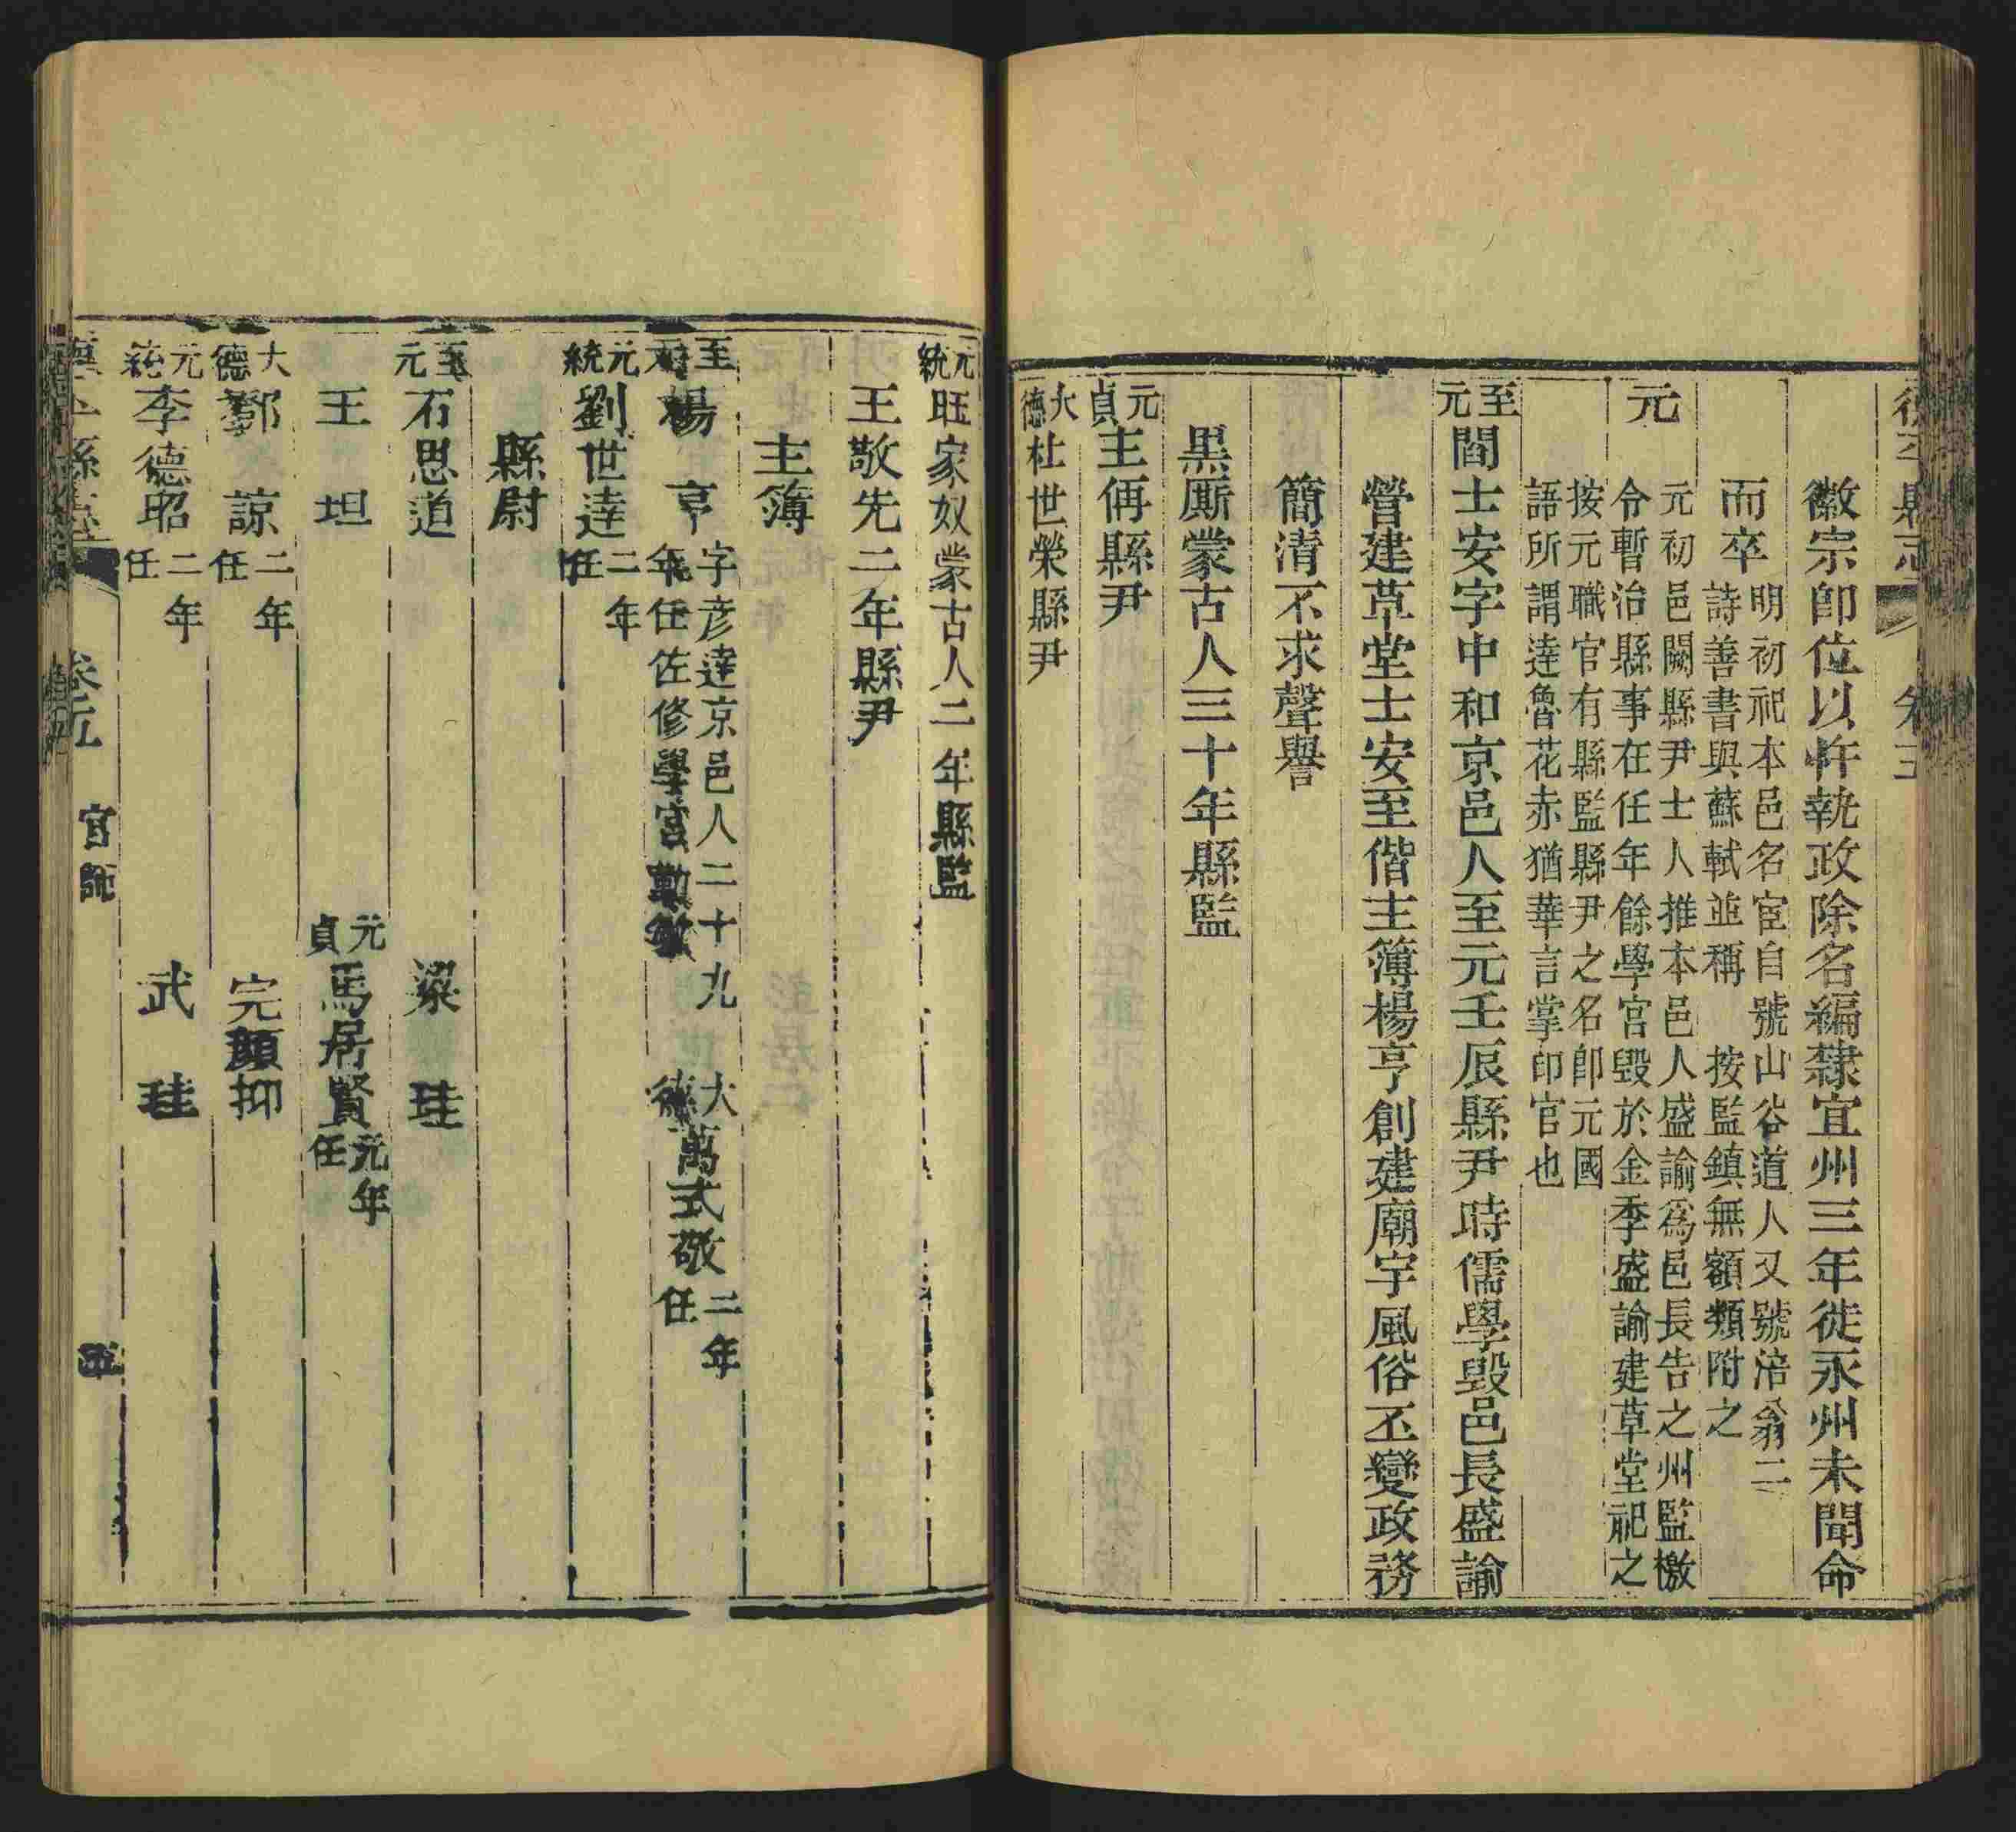 徽宗卽位以忤執政除名編隸宜州三年徙永州未聞命
而卒 明初祀本邑名宦自號山谷道人又號涪翁二
詩善書與蘇軾並稱 按監鎮無額類附之
元 元初邑闕縣尹士人推本邑人盛諭爲邑長告之州監檄
令暫治縣事在任年餘學宮毀於金季盛諭建草堂祀之
按元職官有縣監縣尹之名卽元國
語所謂達魯花赤猶華言掌印官也
至元 閻士安字中和京邑人至元壬辰縣尹時儒學毀邑長盛諭
營建草堂士安至偕主簿楊亨創建廟宇風俗丕變政務
簡清不求聲譽
黑厮蒙古人三十年縣監
元貞 主侢縣尹
大德 杜世榮縣尹
元統 旺家奴蒙古人二年縣監
王敬先二年縣尹
主簿
至元 楊亨 字彥達京邑人二十九
年任佐修學宮勤敏 大德 萬式敬 二年任
元統 劉世達 二年任
縣尉
至元 石思道 梁珪
王坦 元貞 馬居賢 元年任
大德 鄧諒 二年任 完顏抑
元統 李德昭 二年任 武珪
縣志 卷五 官師 五